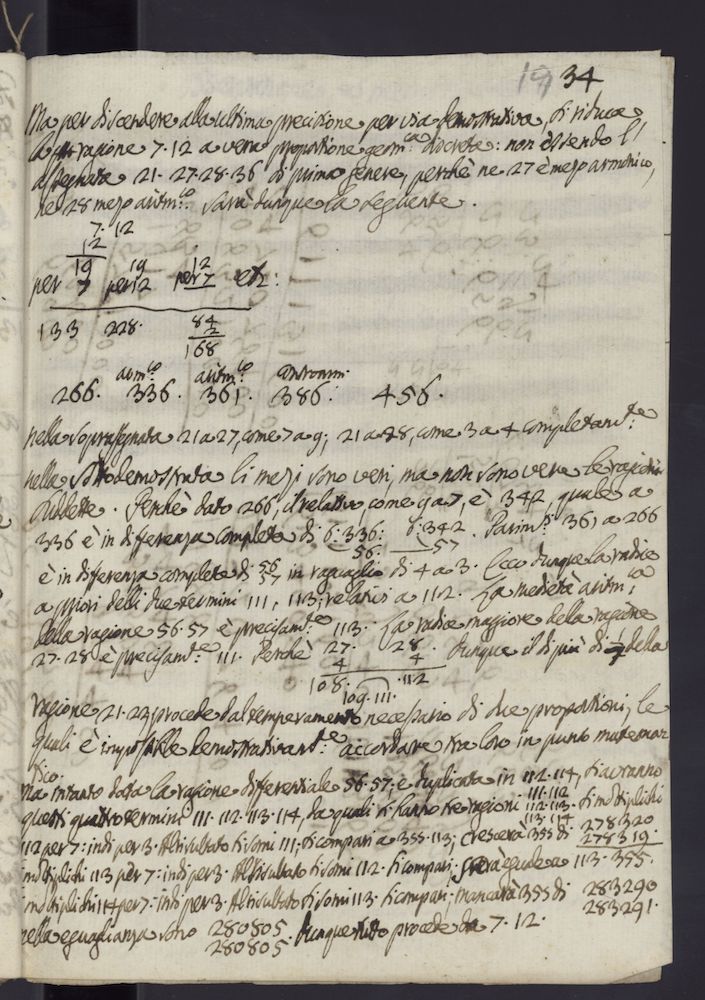 19 34
Ma per discendere alla ultima precisione per via demostrativa, si riduca
la ragione 7·12 a vera proporzione geom.ca discreta: non essendo l'
assegnata 21·27·28·36 di primo genere, perchè ne 27 è mezo armonico,
ne 28 mezo aritm.co. Sarà dunque la seguente.
7·12
12
19 19 12
per 7 per 12 per 7 etc:
133 228· 84
2
168
arm.co aritm.co antiarm:
266· 336· 361· 386: 456·
nella soprassegnata 21 a 27, come 7 a 9; 21 a 28, come 3 a 4 completam.te:
nella sottodemostrata li mezi sono veri, ma non sono vere le ragioni
suddette. Perchè dato 266, il relativo come 9 a 7, è 342, quale a
336 è in differenza completa di 6: 336: 6: 342. Parim.te 361 a 266
56: 57
è in differenza completa di 56 57 in ragguaglio di 4 a 3. Ecco dunque la radice
a priori delli due termini 111, 113, relativi a 112. La medietà aritm.ca
della ragione 56·57 è precisam.te 113· La radice maggiore della ragione
27·28 è precisam.te 111· Perchè 27· 28· Dunque il di più di 1/7 della
4 4
108· ·112
109·111·
ragione 21·22, procede dal temperamento necessario di due proporzioni, le
quali è impossibile demostrativam.te accordare tra loro in punto matema
tico.
Ma intanto data la ragione differenziale 56·57, e duplicata in 112·114, si avranno
questi quattro termini 111·112·113·114, da quali si hanno tre ragioni 111·112 112·113· 113·114 Si moltiplichi
112 per 7: indi per 3· Al risultato si somi 111· Si compari a 355·113; crescerà 355 di 278320 278319·
moltiplichi 113 per 7: indi per 3· Al risultato si somi 112· Si compari; sarà eguale a 113·355·
moltiplichi 114 per 7· indi per 3· Al risultato si somi 113· Si compari; mancarà 355 di 283290 283291·
nella eguaglianza sono 280805 280805· Dunque tutto procede da 7·12·